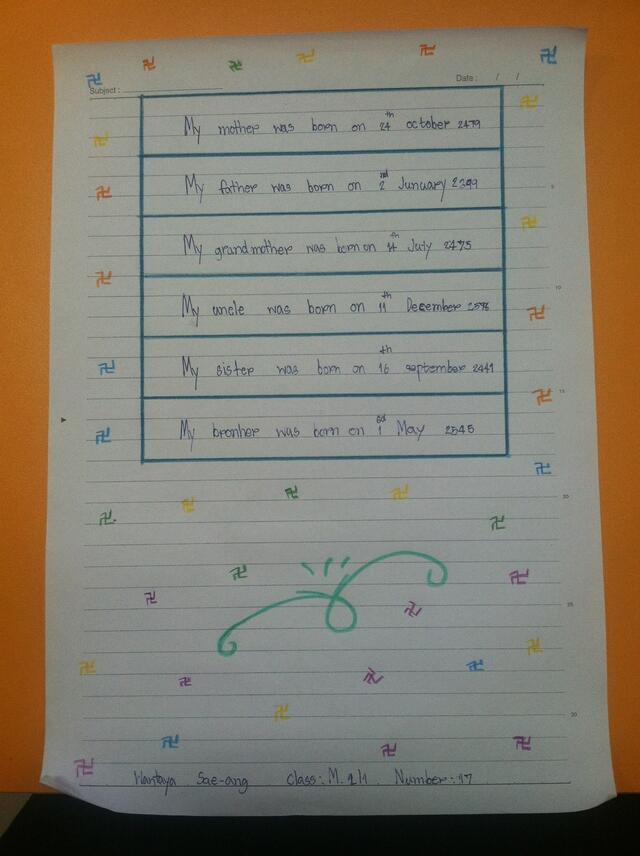 Subject :
Date : / /
My mother was born on 24th october 2479
My father was born on 2nd Junuary 2399
My grandmother was born on 14th July 2475
My uncle was born on 11th December
My sister was born on 16th september 2441
My bronher was born on 1sd May 2545
5
10
15
20
25
30
Wantaya Sae-ang Class: M. Number: 17